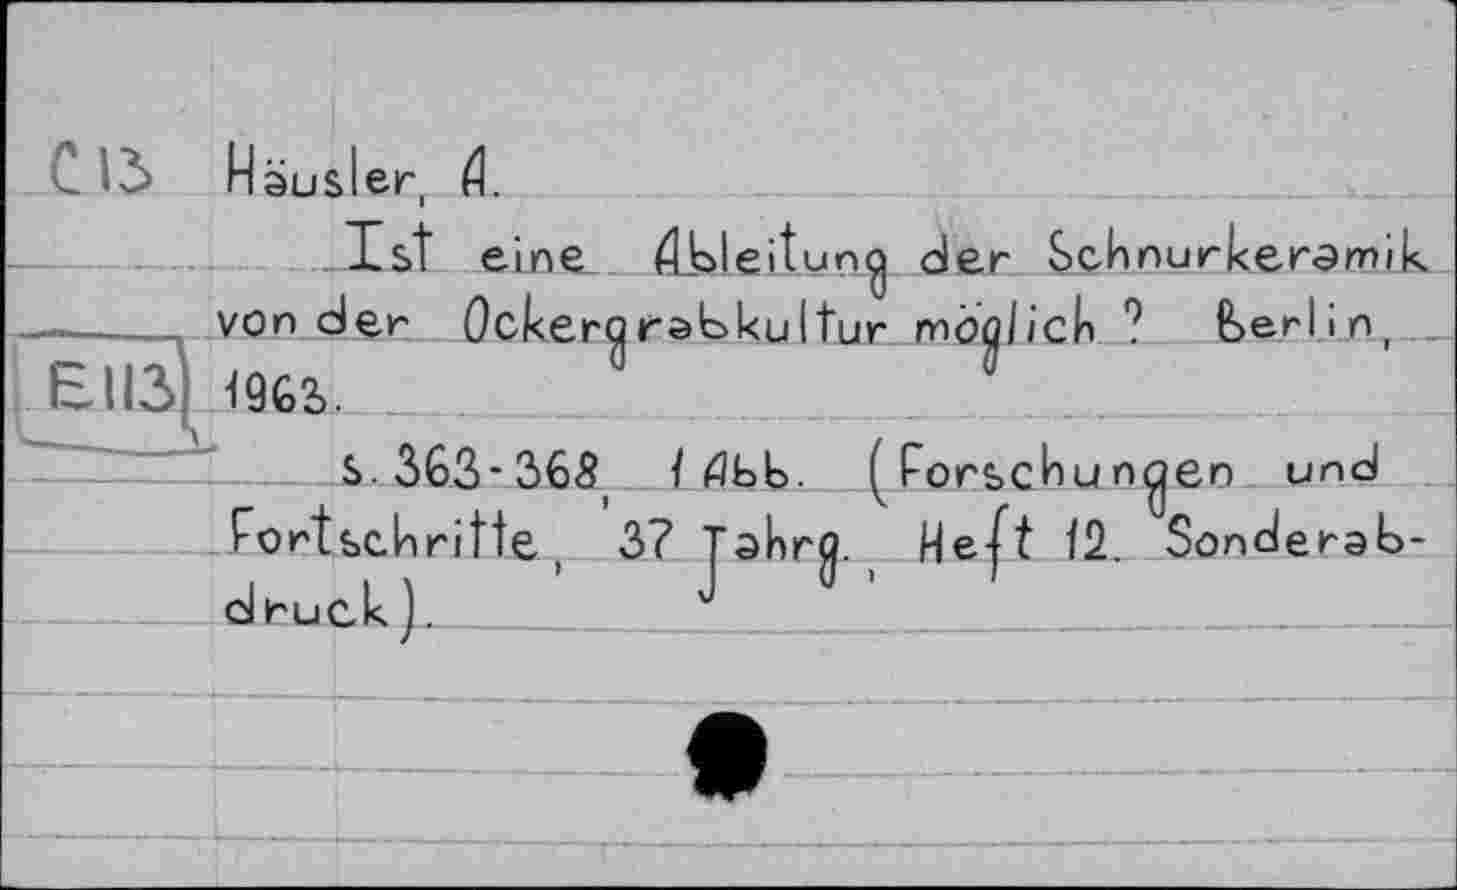 C13 Häusler, A.
Ist eine Ableitung der Schnurkeramik
von der Ockergrabkultur möglich ? Berlin,
E113 1963.
s. 363-368, 1 Abb. (Forschungen und
Fortschritte, 37 Jahrg., Heft 12. Sonderab-
druck).